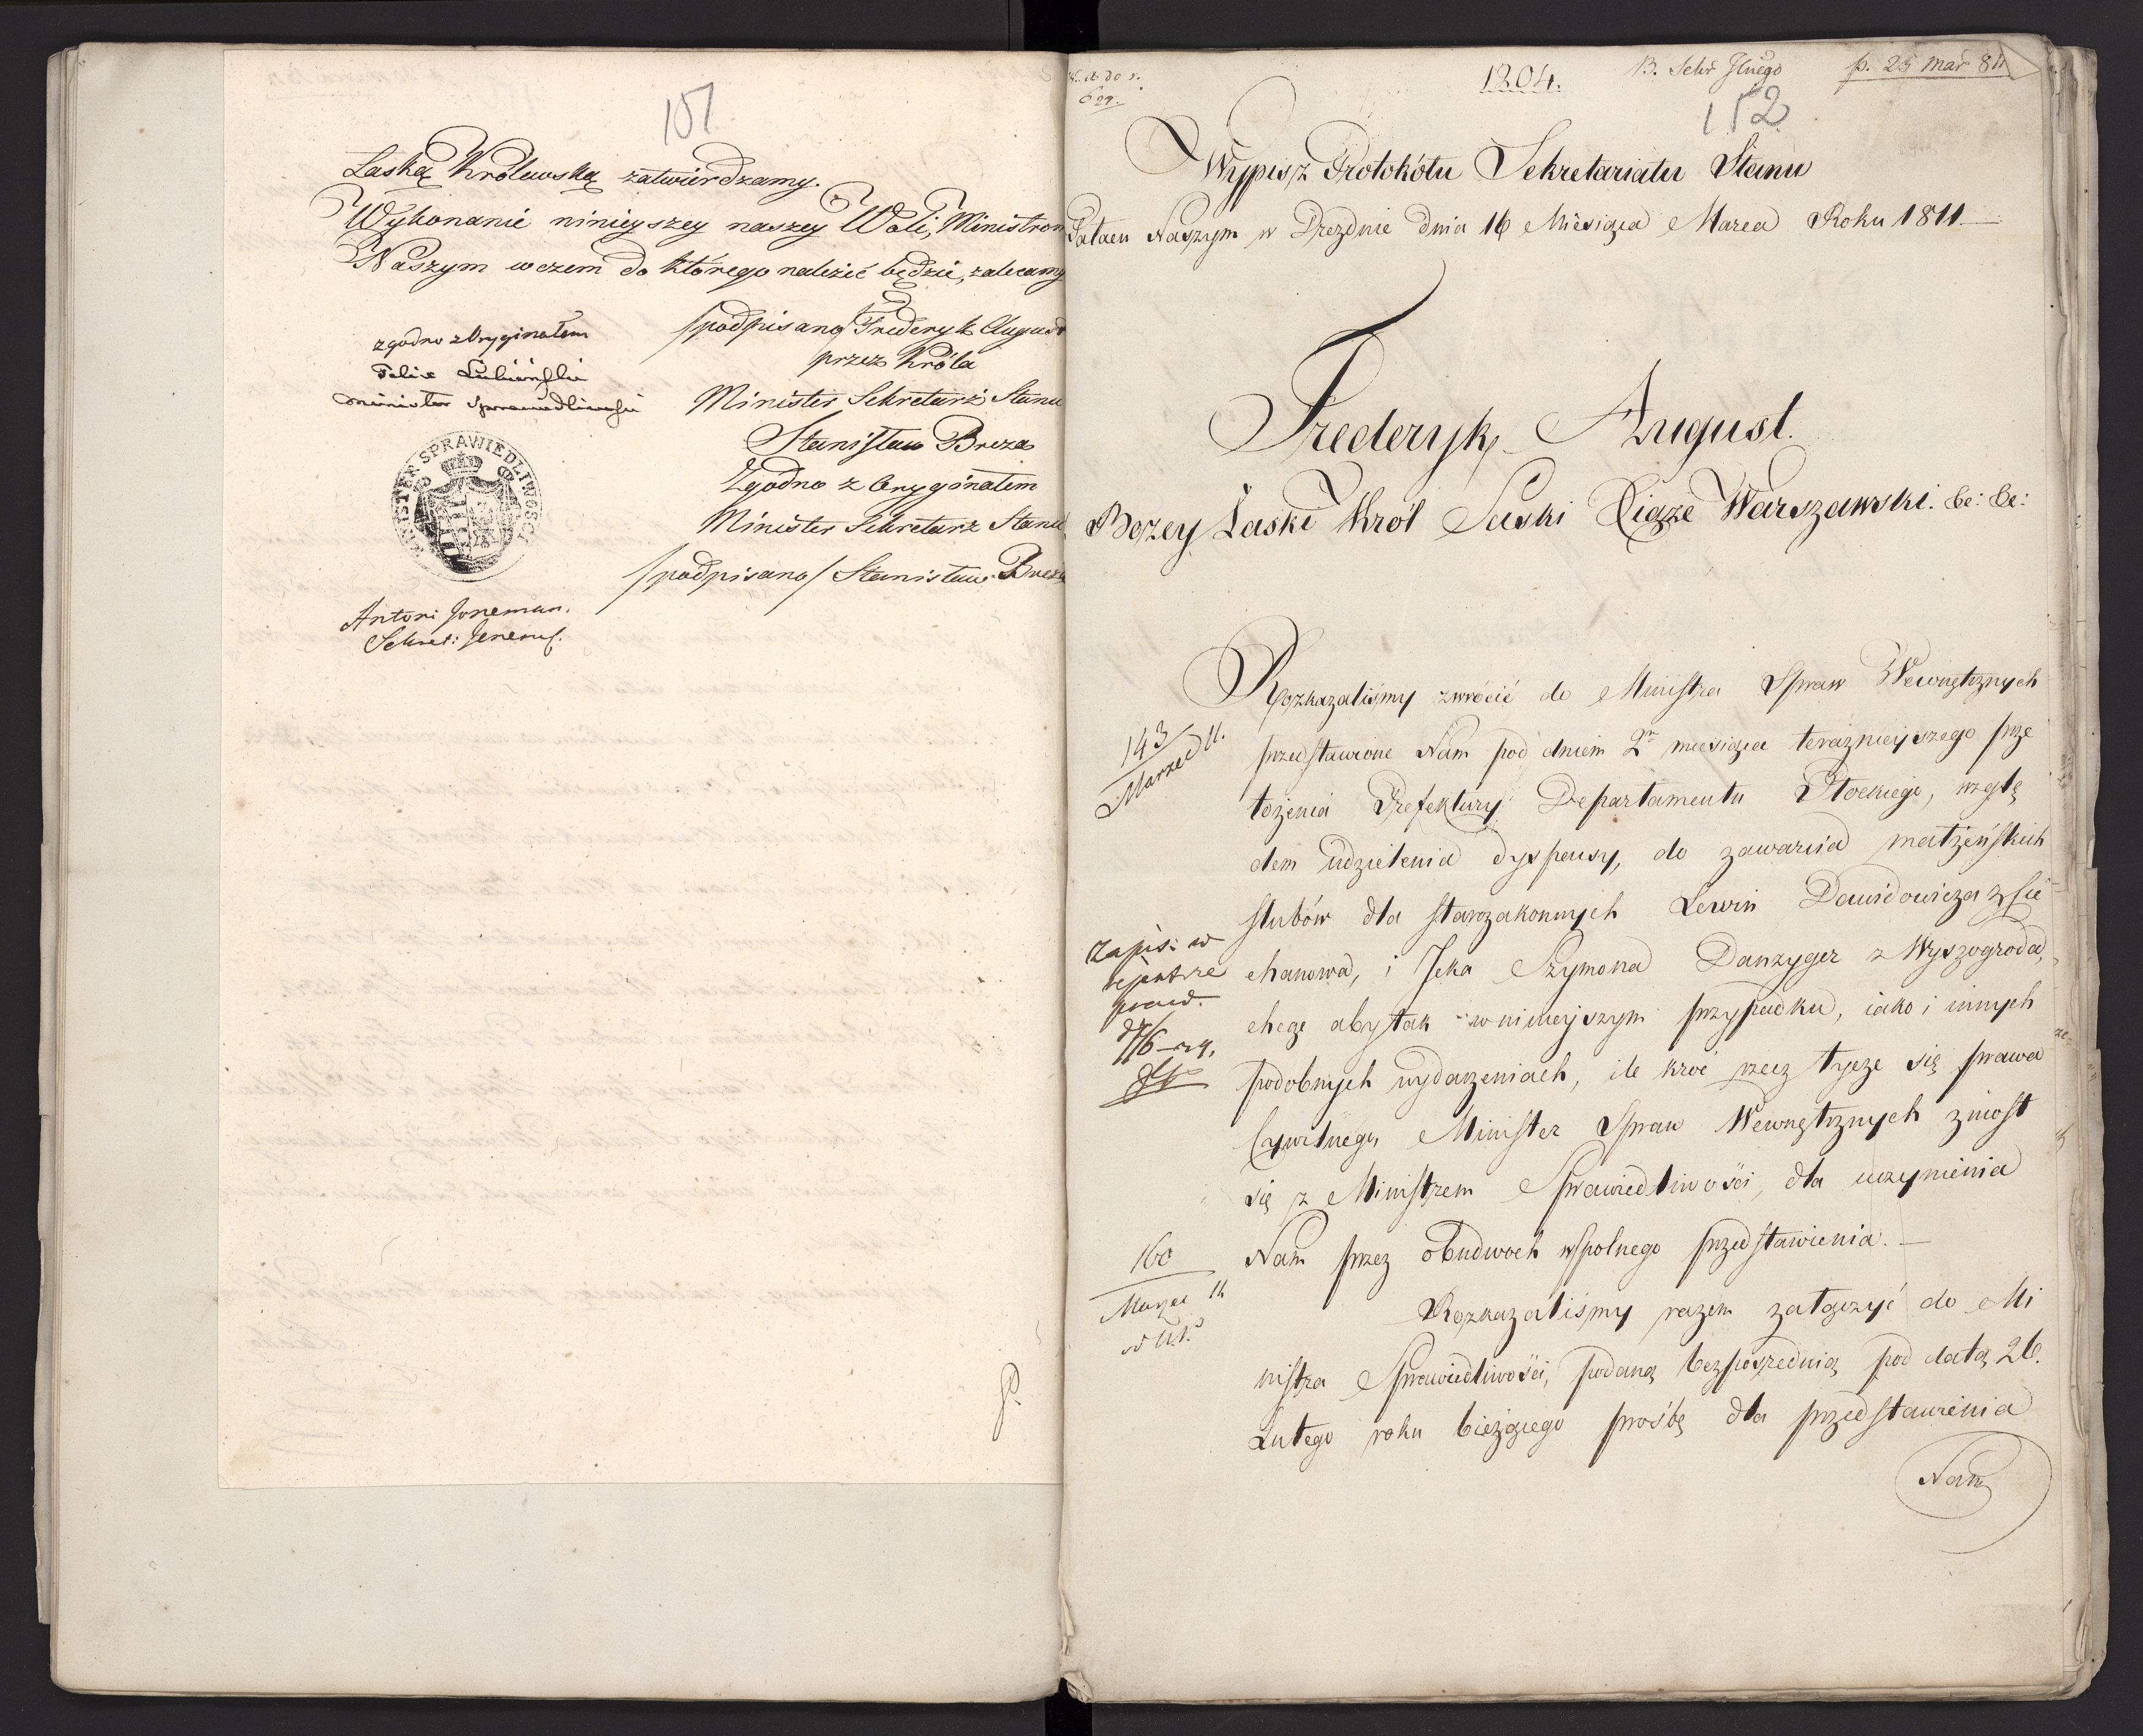 151
Łaską Królewską zatwierdzamy.
Wykonanie ninieyszey naszey Woli, Ministrom
Naszym w czem do którego należeć będzie, zalecamy
/podpisano/ Frederyk August
przez Króla
Minister Sekretarz Stanu
Stanisław Breza
Zgodno z Oryginałem
Minister Sekretarz Stanu
/podpisano/ Stanisław Breza
zgodno z Oryginałem
Felix Lubieński
Minister Sprawiedliwości
MINISTER SPRAWIEDLIWOŚCI
Antoni Joneman.
Sekret: Jeneral.
629.
1204.
p. 25 Mar 811
152
Wypis z Protokółu Sekretariatu Stanu
Pałacu Naszym w Dreznie dnia 16 Miesiąca Marca Roku 1811
Frederyk August.
Bożey Łaski Król Saski Xiąże Warszawski. &c: &c:
Rozkazaliśmy zwrócić do Ministra Spraw Wewnętrznych
przedstawione Nam pod dniem 2º miesiąca teraznieyszego prze
łożenia Prefektury Departamentu Płockiego, wzglę
dem udzielenia dyspensy, do zawarcia małżeńskich
ślubów dla starozakonnych Lewin Dawidowicza z Cie
chanowa, i Jcka Szymona Danzyger z Wyszogroda,
chcąc aby tak w ninieyszym przypadku, iako i innych
podobnych wydarzeniach, ile kroć rzecz tycze się prawa
Cywilnego, Minister Spraw Wewnętrznych zniosł
się z Ministrem Sprawiedliwości, dla uczynienia
Nam przez obudwoch wspolnego przedstawienia. —
Rozkazaliśmy razem załączyć do Mi
nistra Sprawiedliwości, podaną bezpośrednią pod datą 26.
Lutego roku bieżącego prośbę dla przedstawienia
Nam
143
Marzec 11.
Zapis: w
160
Marzec 11